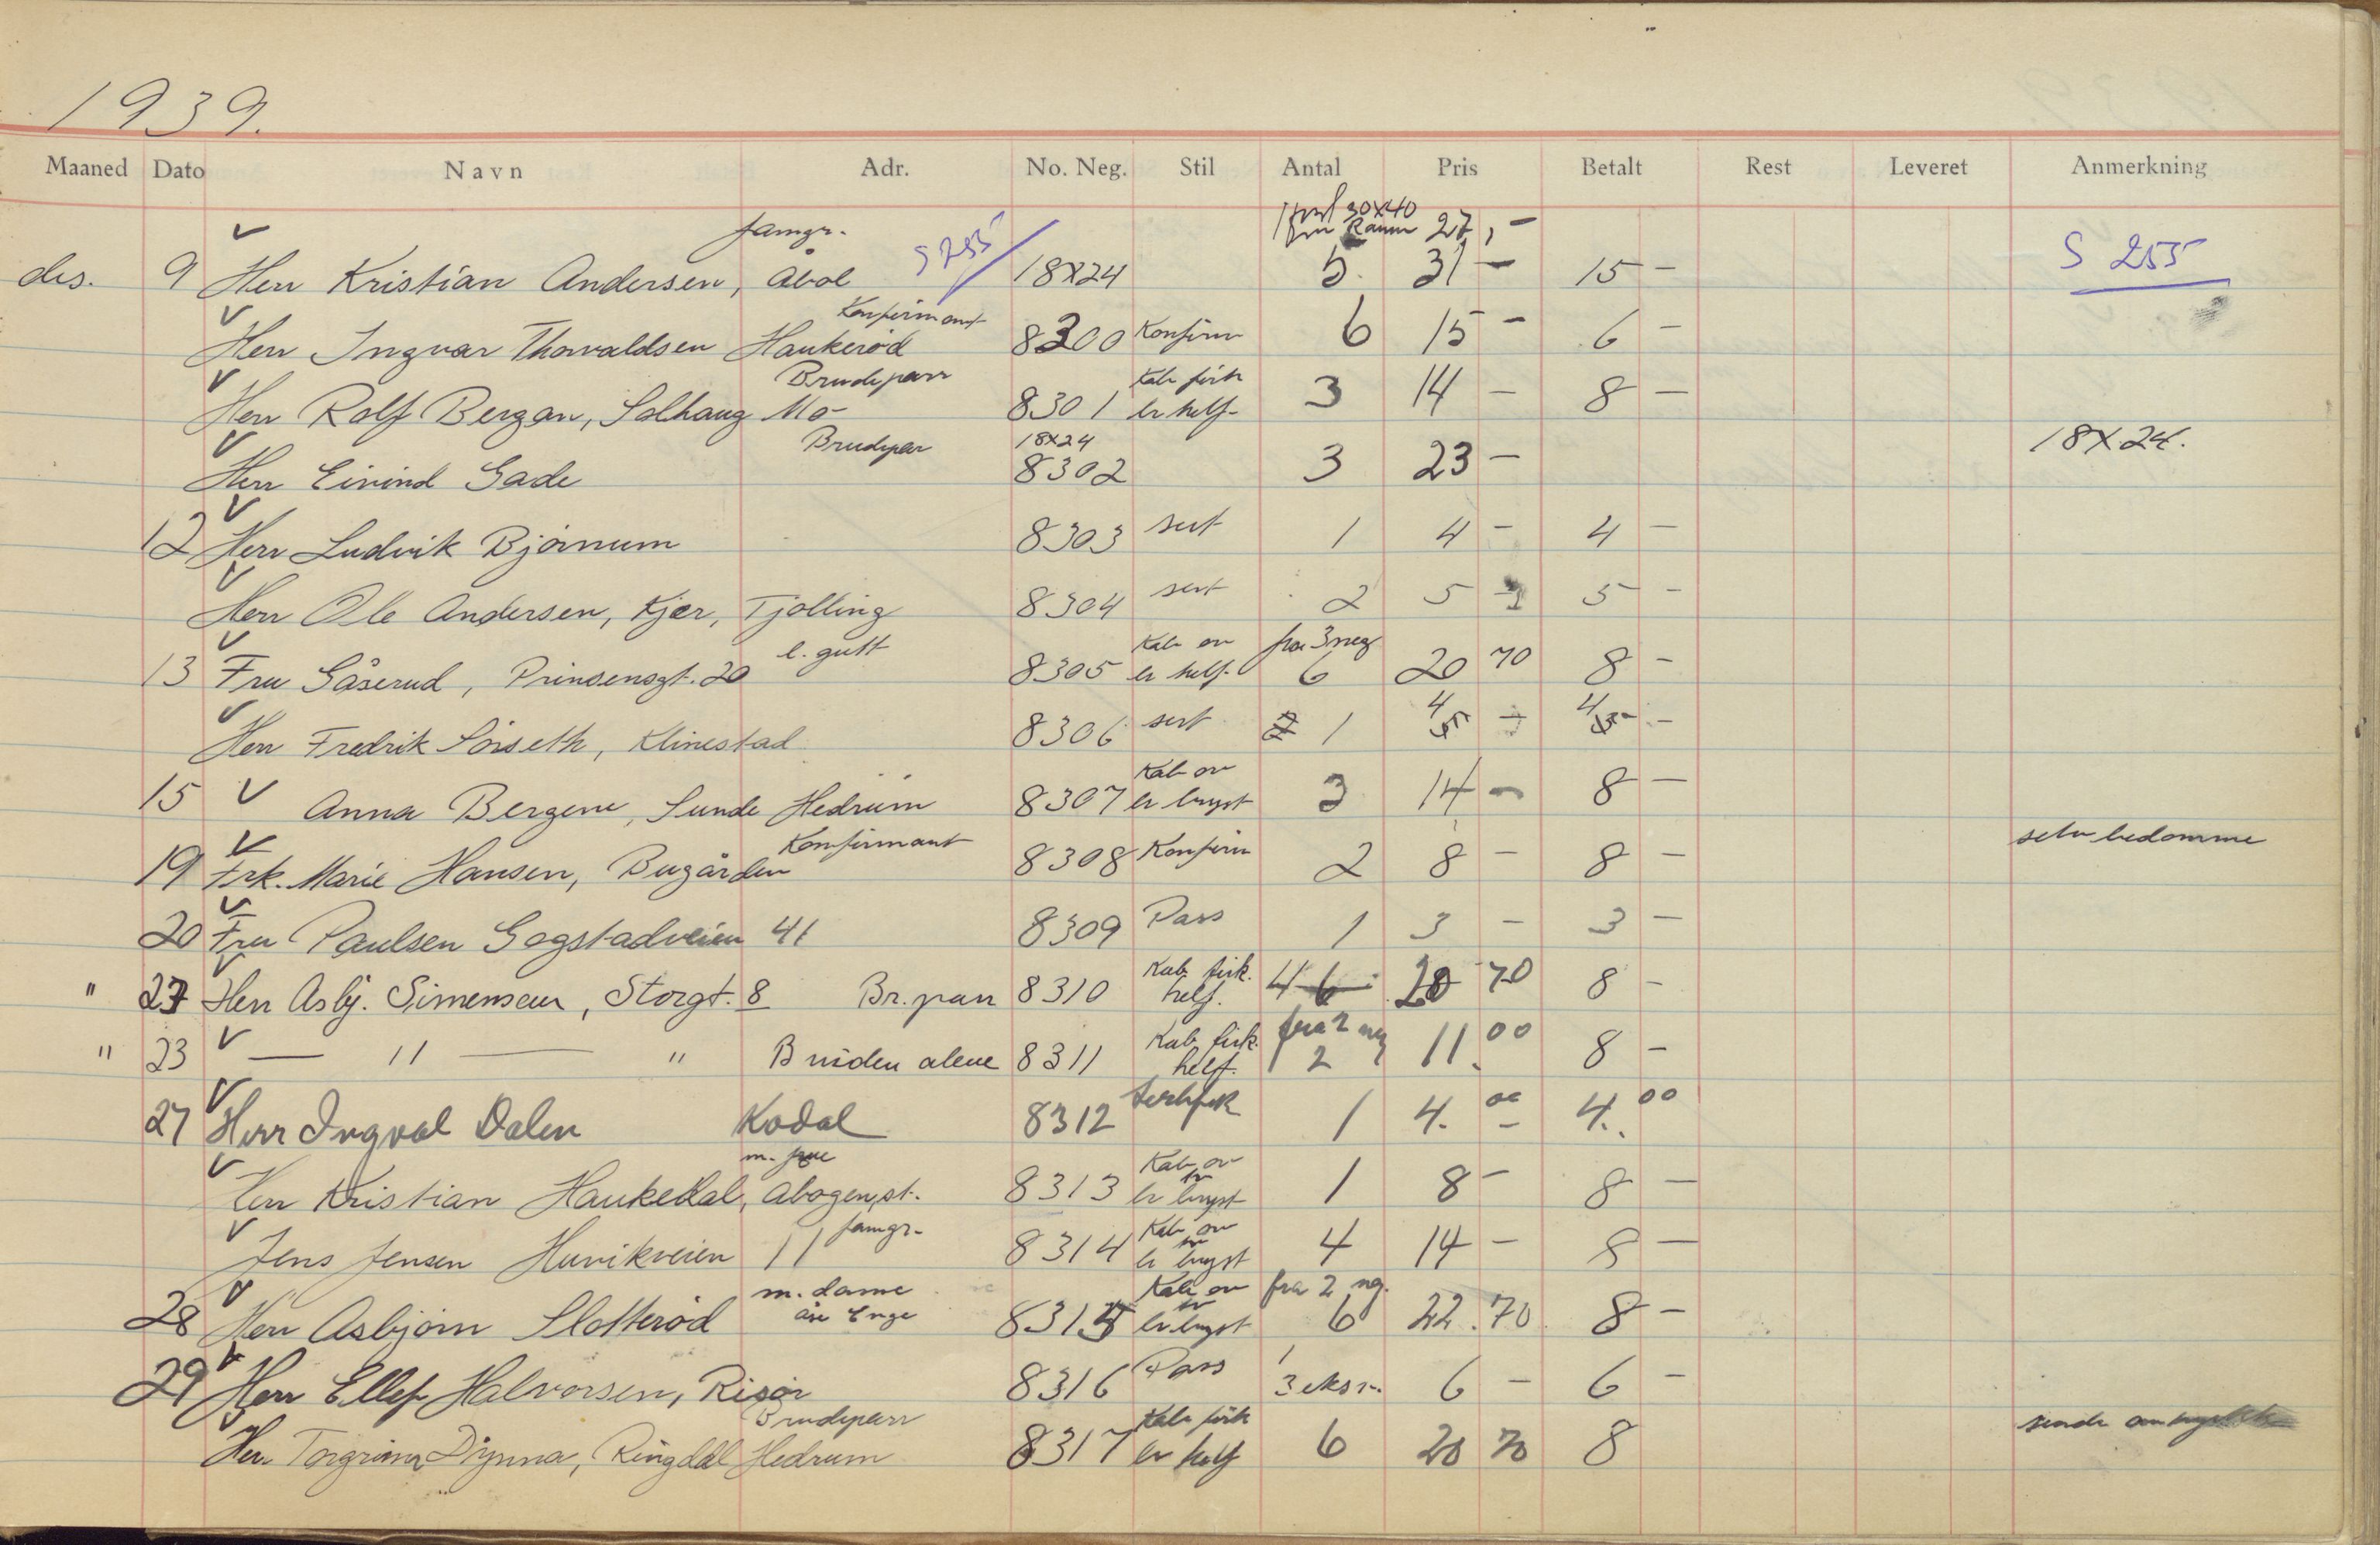 1939.
Maaned Dato Navn Adr. No. Neg. Stil Antal Pris Betalt Rest Leveret Anmerkning
famgr. 30x40 27,-
des. 9 Herr Kristian Andersen, Åbol 18x24 5 31 - 15 - S 255
Konfirmant
Herr Ingvar Thorvaldsen Haukerød 8300 Konfirm 6 15 - 6 -
Brudepar Kab firk
Herr Rolf Bergan, Solhaug Mo- 8301 er helf- 3 14 - 8 -
Brudepar 18x24 18x24.
Herr Eivind Gade 8302 3 23 -
12 Herr Ludvik Bjørnum 8303 sert 1 4 - 4 -
Herr Ole Andersen, Kjær, Tjølling 8304 sert 2 5 - 5 -
l. gutt Kab ov fra 3 neg
13 Fru Gåserud, Prinsensgt. 20 8305 er helf. 6 20 70 8 -
4 4
Herr Fredrik Sørseth, Klinestad 8306 sert 2 1 5 - 5 -
Kab ov
15 Anna Bergene, Sunde Hedrum 8307 er bryst 3 14 - 8 -
Konfirmant selv bedømme
19 Frk. Marie Hansen, Bugården 8308 Konfirm 2 8 - 8 -
20 Fru Paulsen Gogstadveien 41 8309 Pass 1 3 - 3 -
Kab. firk.
" 23 Herr Asbj. Simensen, Storgt. 8 Br. par 8310 helf. 4 6 70 8 -
Kab. firk. fra 2 neg
" 23 — " — " Bruden alene 8311 helf. 2 11.00 8 -
27 Herr Ingval Dalen Kodal 8312 1 4.00 4.00
m. frue Kab. ov
Herr Kristian Haukedal, Åbogen st. 8313 er bryst 1 8 - 8 -
famgr. Kab. ov
Jens Jensen Huvikveien 11 8314 er bryst 4 14 - 8 -
m. dame Kab ov fra 2 neg.
28 Herr Asbjørn Slotterød Enge 8315 er bryst 6 22.70 8 -
1
29 Herr Ellef Halvorsen, Risør 8316 Pass 3 ekstr. 6 - 6 -
Brudepar Kab firk sende
Herr Torgrim Dynna, Ringdal Hedrum 8317 er helf 6 20 70 8